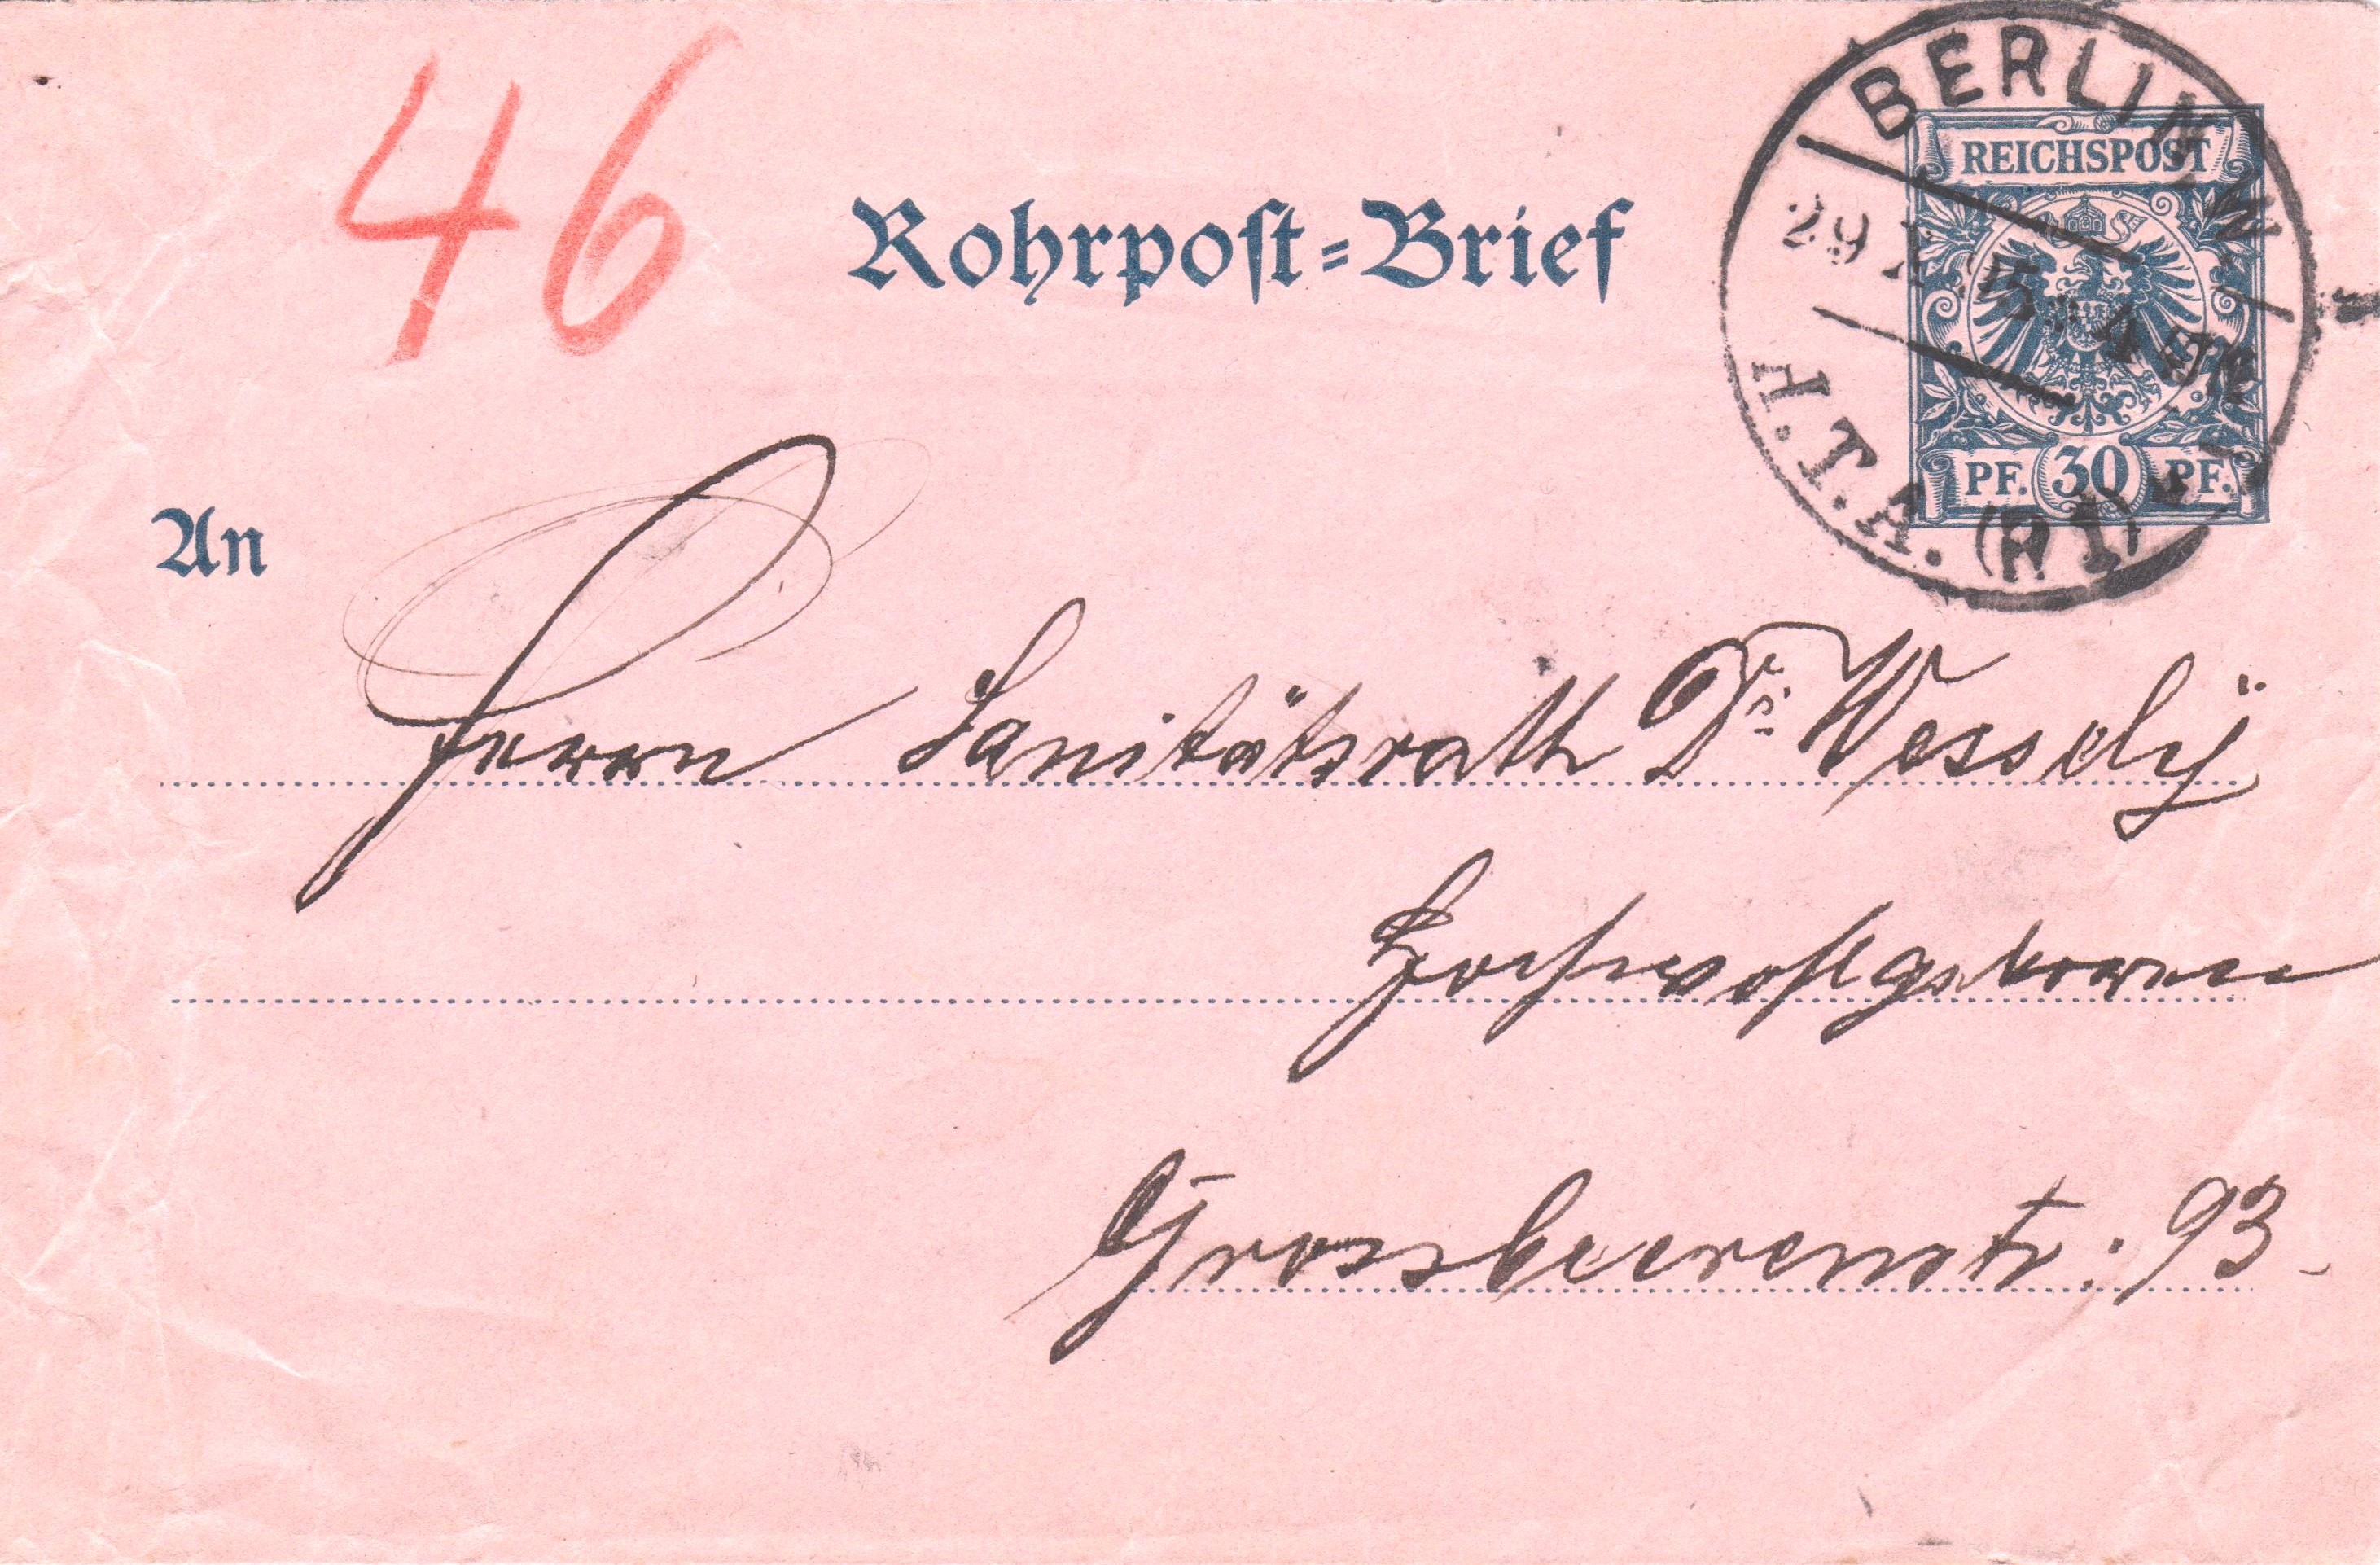 46
Rohrpost-Brief
BERLIN W
29
H.T.A. (R 1)
REICHSPOST
PF. 30 PF.
An
Herrn Sanitätsrath Dr. Wessely
Hochwohlgeboren
Grossbeerenstr: 93.